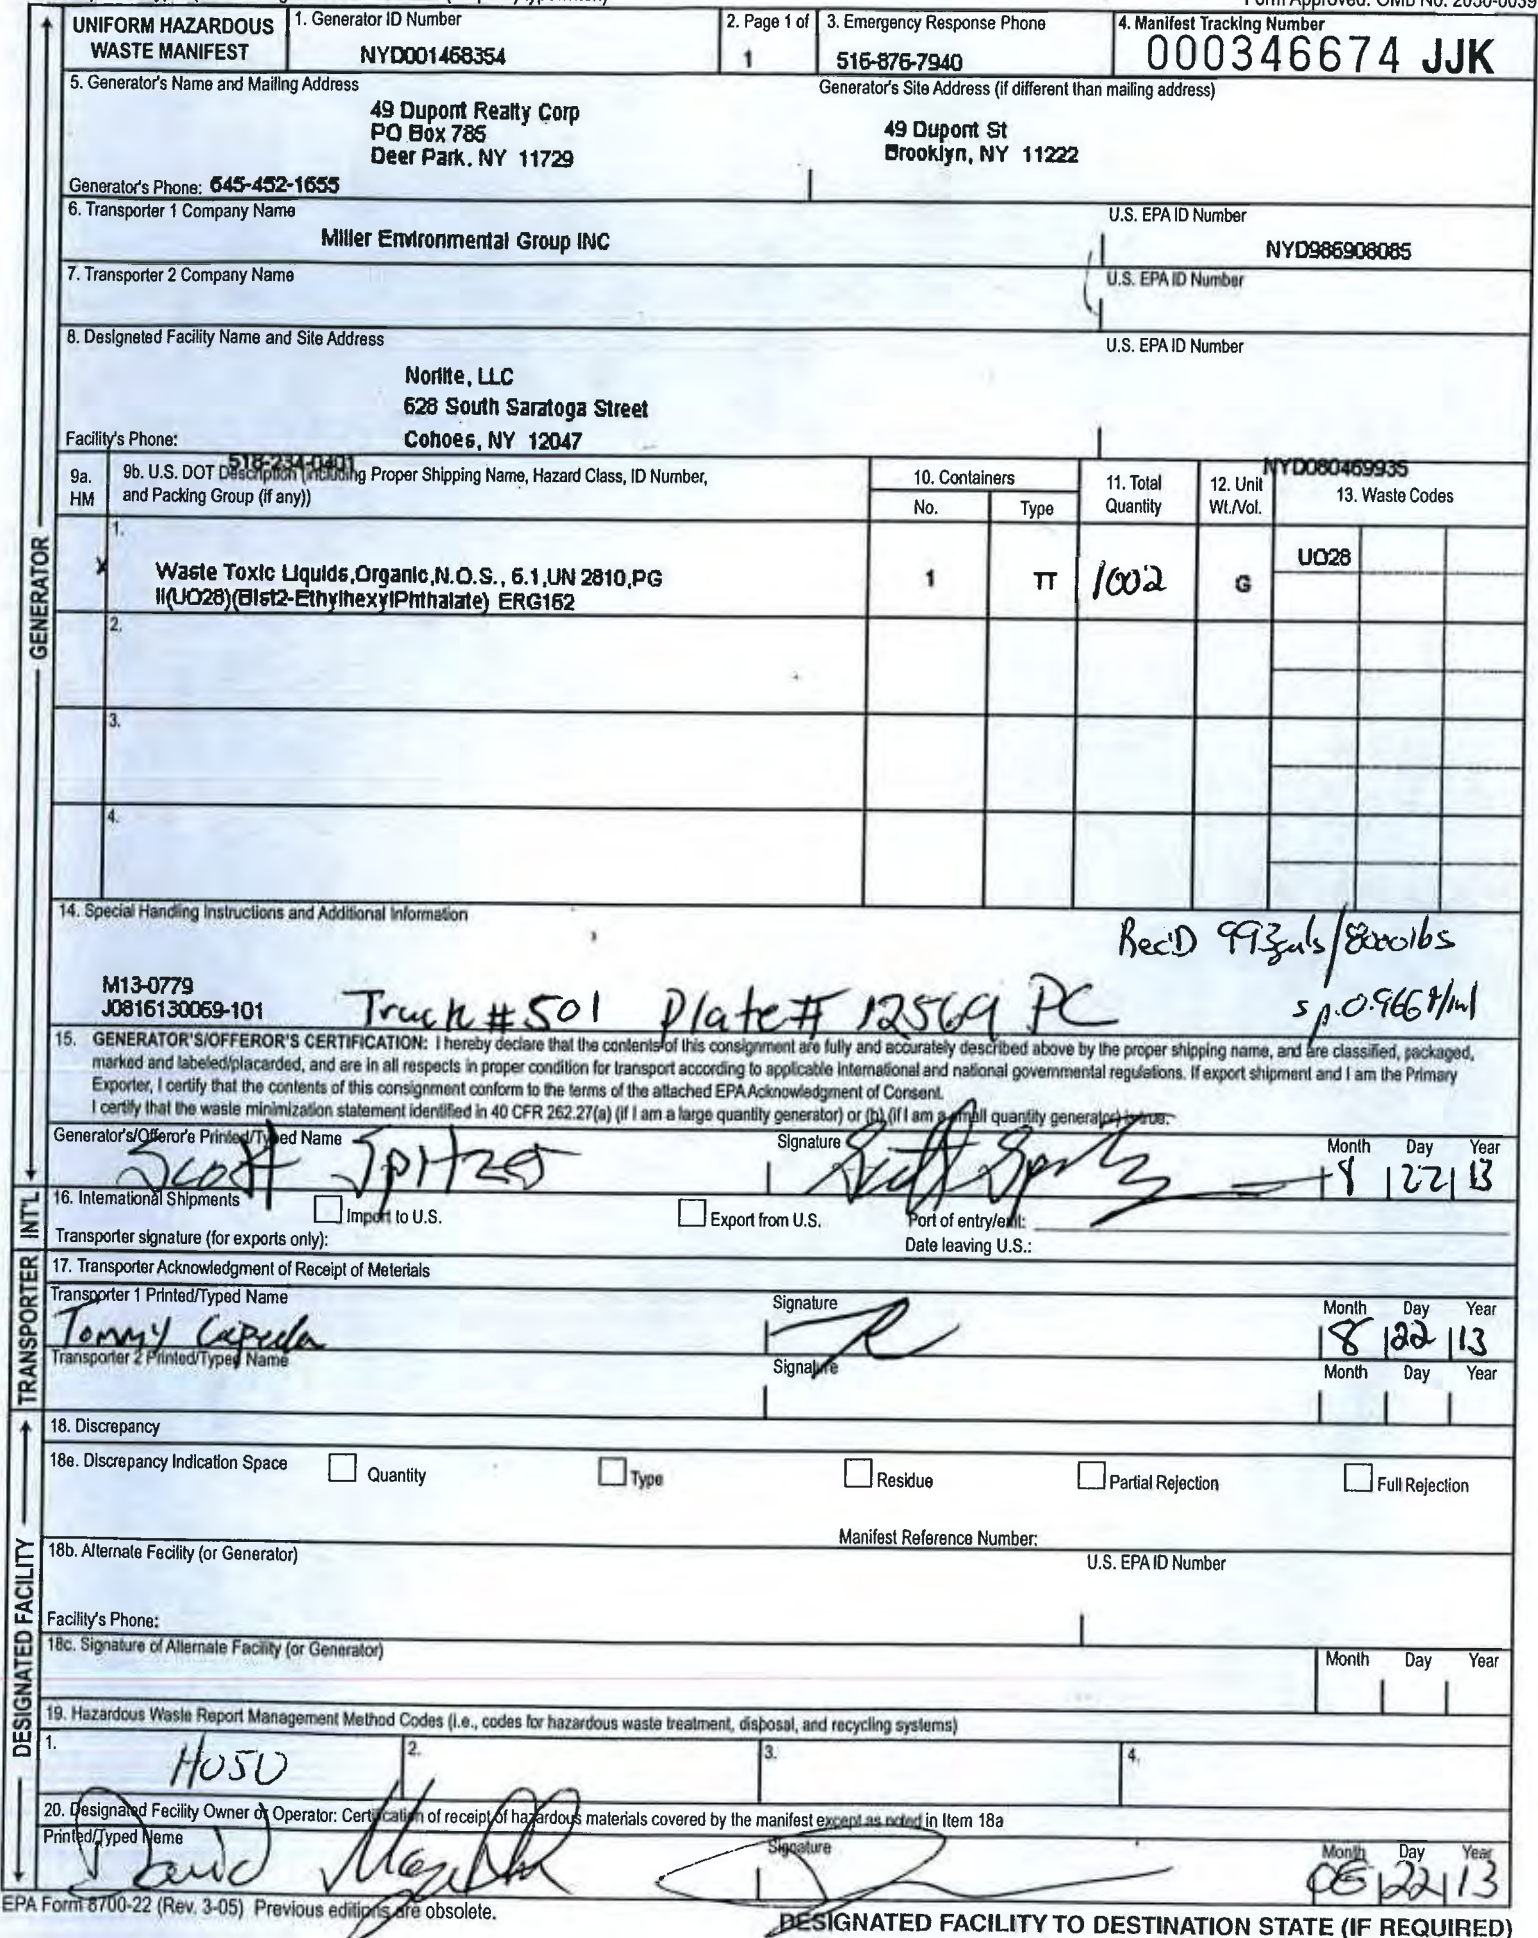 UNIFORM HAZARDOUS WASTE MANIFEST
1. Generator ID Number
NYD001468354
2. Page 1 of
1
3. Emergency Response Phone
516-876-7940
4. Manifest Tracking Number
000346674 JJK
5. Generator's Name and Mailing Address
49 Dupont Realty Corp
PO Box 785
Deer Park, NY 11729
Generator's Site Address (if different than mailing address)
49 Dupont St
Brooklyn, NY 11222
Generator's Phone: 645-452-1655
6. Transporter 1 Company Name
Miller Environmental Group INC
U.S. EPA ID Number
NYD986908085
7. Transporter 2 Company Name
U.S. EPA ID Number
8. Designated Facility Name and Site Address
U.S. EPA ID Number
Norlite, LLC
628 South Saratoga Street
Cohoes, NY 12047
Facility's Phone:
518-234-0401
NYD080469935
9a. HM
9b. U.S. DOT Description (including Proper Shipping Name, Hazard Class, ID Number, and Packing Group (if any))
10. Containers
No.
Type
11. Total Quantity
12. Unit Wt./Vol.
13. Waste Codes
1.
X
Waste Toxic Liquids,Organic,N.O.S., 6.1,UN 2810,PG
II(UO28)(Bist2-EthylhexylPhthalate) ERG162
1
TT
1002
G
UO28
2.
3.
4.
14. Special Handling Instructions and Additional Information
Rec'D 993gals/8000lbs
M13-0779
J0816130059-101
Truck #501 Plate# 12569 PC
15. GENERATOR'S/OFFEROR'S CERTIFICATION: I hereby declare that the contents of this consignment are fully and accurately described above by the proper shipping name, and are classified, packaged,
marked and labeled/placarded, and are in all respects in proper condition for transport according to applicable international and national governmental regulations. If export shipment and I am the Primary
Exporter, I certify that the contents of this consignment conform to the terms of the attached EPA Acknowledgment of Consent.
I certify that the waste minimization statement identified in 40 CFR 262.27(a) (if I am a large quantity generator) or (b) (if I am a small quantity generator) is true.
Generator's/Offeror's Printed/Typed Name
Signature
Month Day Year
Scott Spitzer
8 22 13
16. International Shipments
Import to U.S.
Export from U.S.
Port of entry/exit:
Transporter signature (for exports only):
Date leaving U.S.:
17. Transporter Acknowledgment of Receipt of Materials
Transporter 1 Printed/Typed Name
Signature
Month Day Year
Tommy
8 22 13
Transporter 2 Printed/Typed Name
Signature
Month Day Year
18. Discrepancy
18a. Discrepancy Indication Space
Quantity
Type
Residue
Partial Rejection
Full Rejection
Manifest Reference Number:
18b. Alternate Facility (or Generator)
U.S. EPA ID Number
Facility's Phone:
18c. Signature of Alternate Facility (or Generator)
Month Day Year
19. Hazardous Waste Report Management Method Codes (i.e., codes for hazardous waste treatment, disposal, and recycling systems)
1.
H050
2.
3.
4.
20. Designated Facility Owner or Operator: Certification of receipt of hazardous materials covered by the manifest except as noted in Item 18a
Printed/Typed Name
Signature
Month Day Year
David
22 13
EPA Form 8700-22 (Rev. 3-05) Previous editions are obsolete.
DESIGNATED FACILITY TO DESTINATION STATE (IF REQUIRED)
GENERATOR
INT'L
TRANSPORTER
DESIGNATED FACILITY